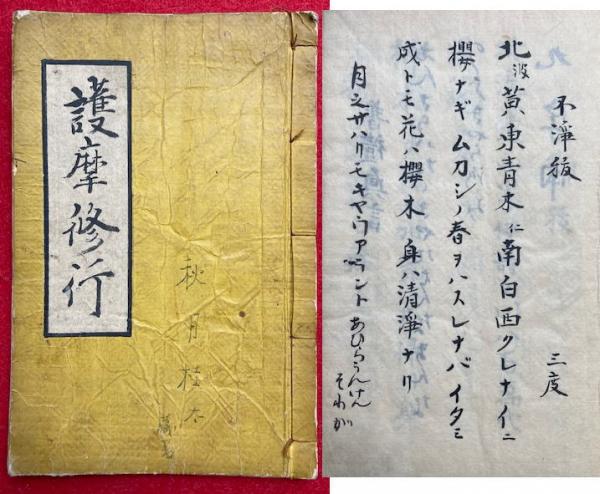 護摩修行
秋月桂太
不淨祓 三度
北波黄東青木仁南白西クレナイニ
櫻ナギムカシノ春ヲハスレナバイタミ
成トモ花ハ櫻木身ハ清淨ナリ
月之サハリモキヤウアラント あびらうんけん
そわか